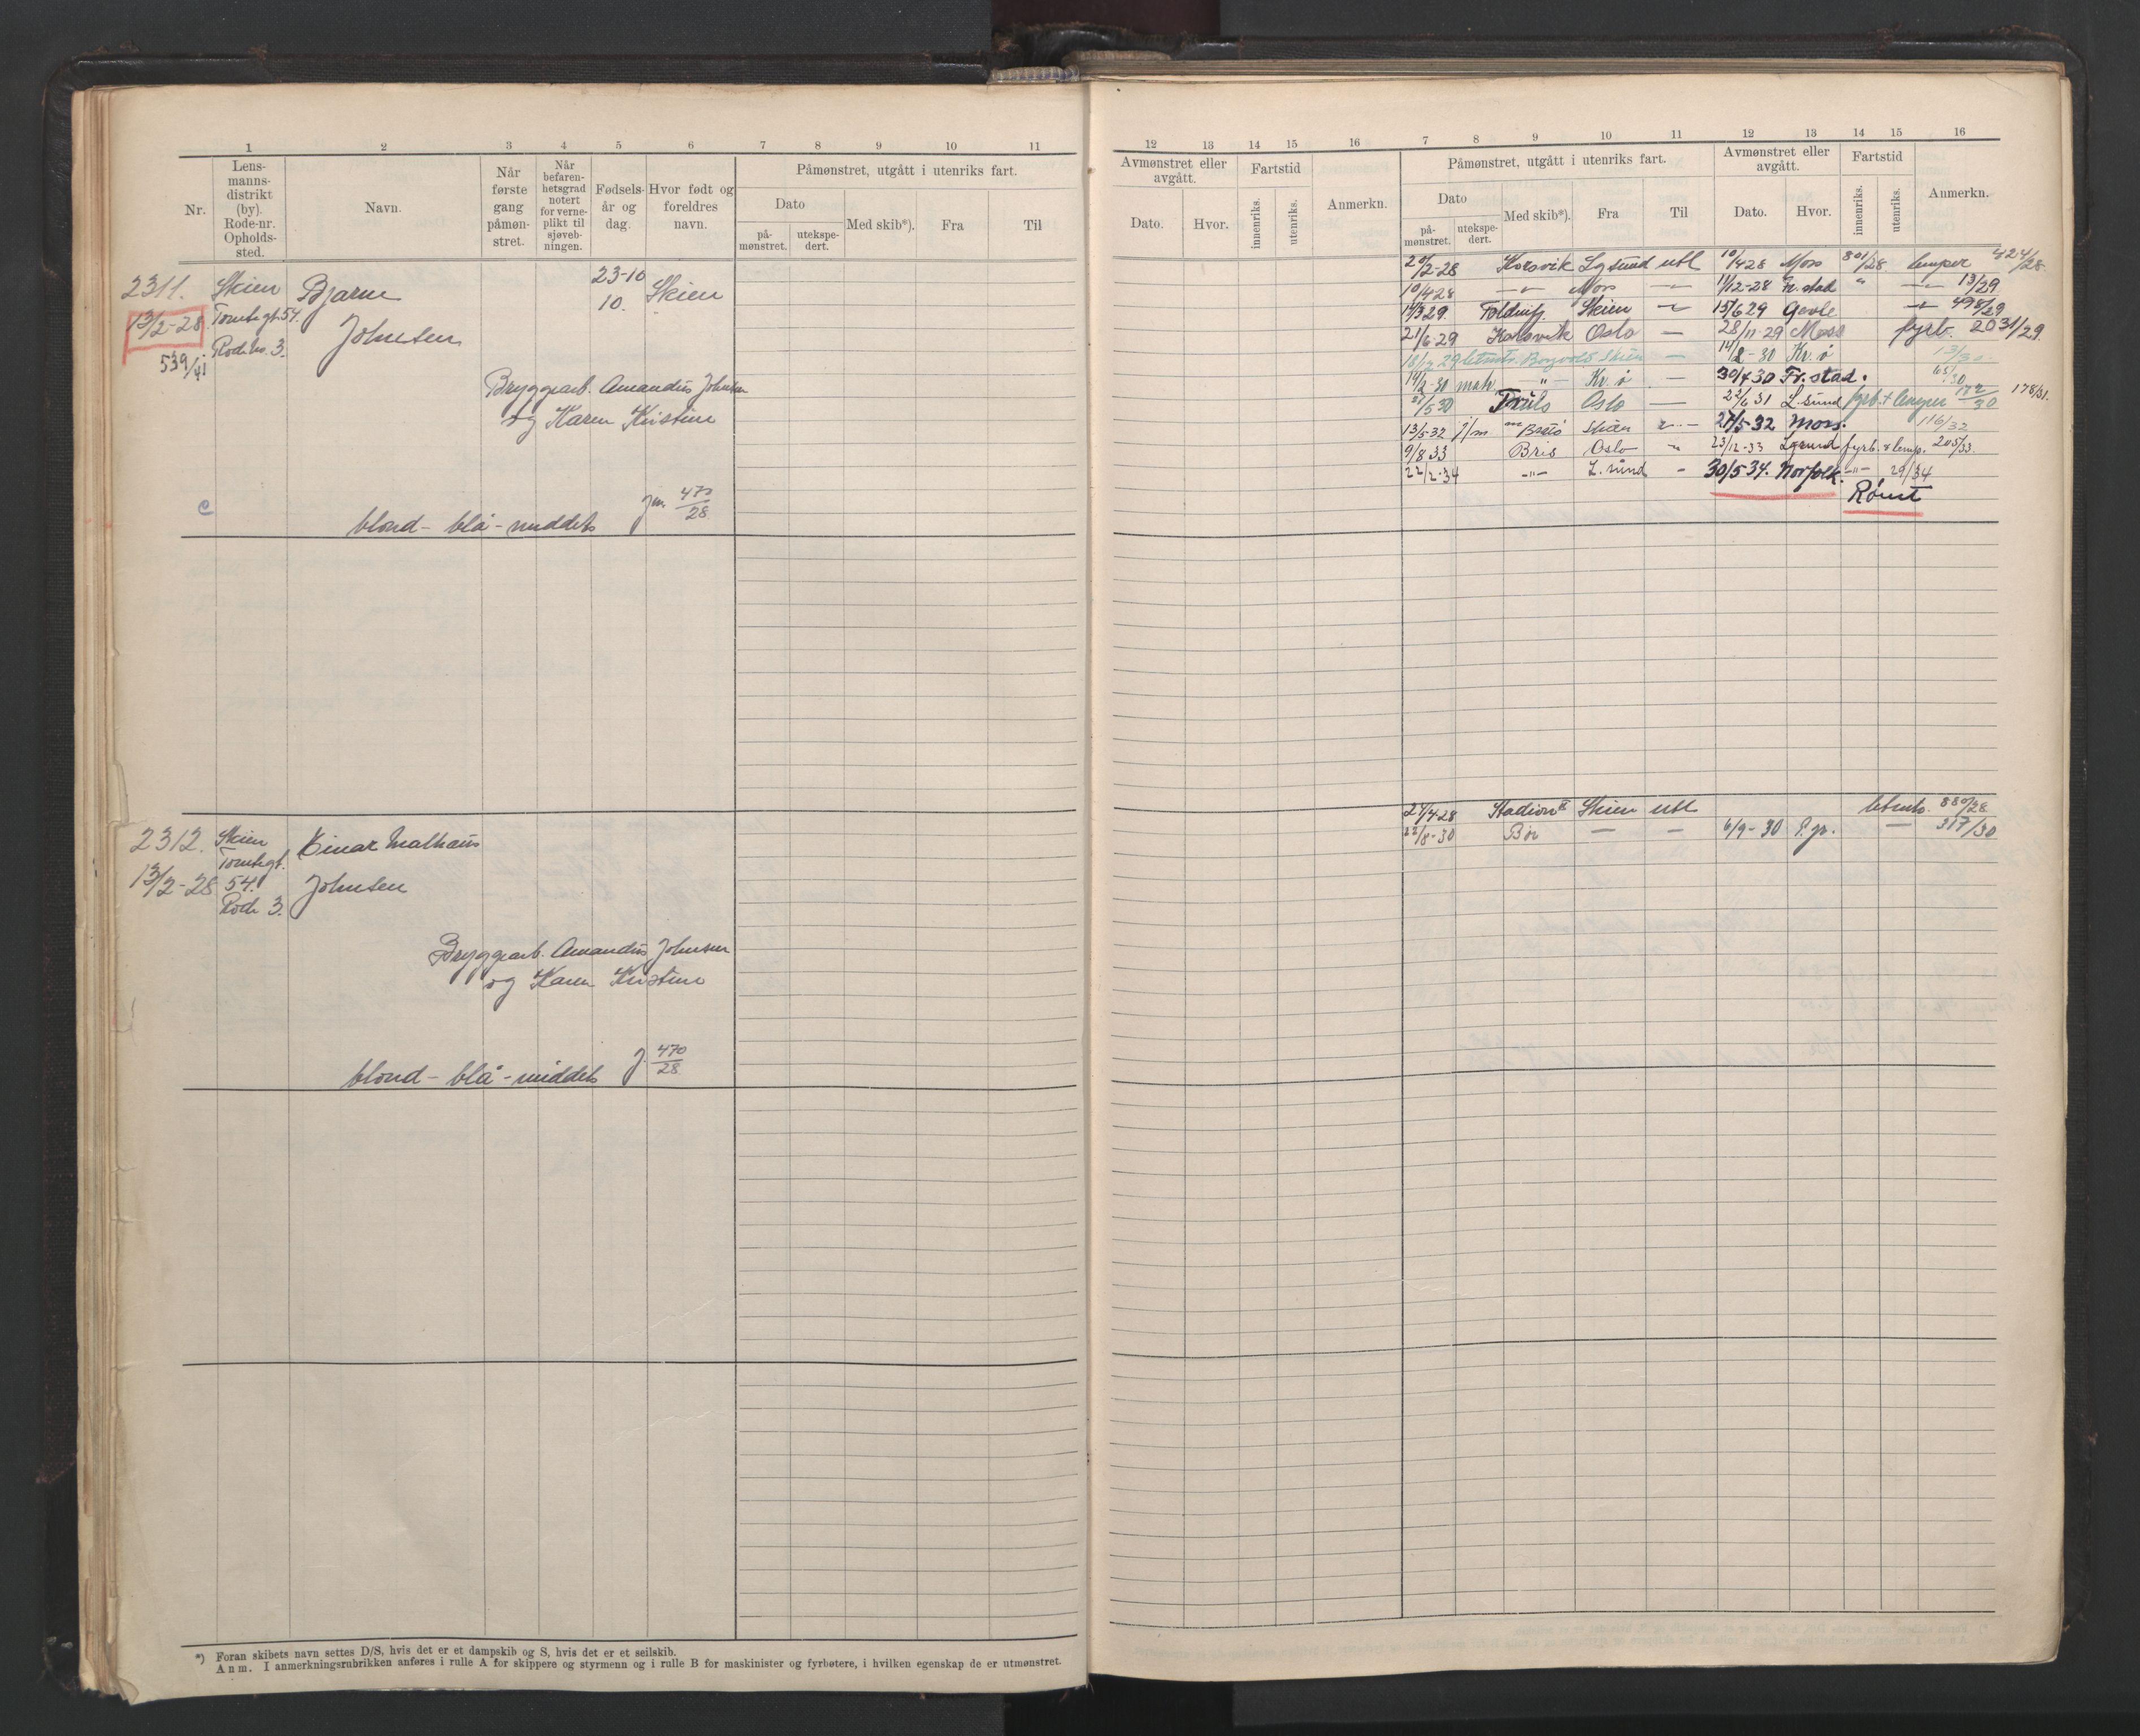 1 2 3 4 5 6 7 8 9 10 11
Nr.
Lens-
manns-
distrikt
(by).
Rode-nr.
Opholds-
sted.
Navn.
Når
første
gang
påmøn-
stret.
Når
befaren-
hetsgrad
notert
for verne-
plikt til
sjøveb-
ningen.
Fødsels-
år og
dag.
Hvor født og
foreldres
navn.
Påmønstret, utgått i utenriks fart.
Dato
på-
mønstret.
utekspe-
dert.
Med skib*).
Fra
Til
2311. Skien Bjarne 23-10 Skien
13/2-28 Tomtegt. 54. 10.
Rode no. 3. Johnsen
539/41
Bryggearb. Amandus Johnsen
og Karen Kristine
blond - blå - middels Jn. 470/28
2312. Skien Einar Mathæus
Tomtegt.
13/2-28 54. Johnsen
Rode 3.
Bryggearb. Amandus Johnsen
og Karen Kristine
blond - blå - middels J. 470/28
*) Foran skibets navn settes D/S, hvis det er et dampskib og S, hvis det er et seilskib.
Anm. I anmerkningsrubrikken anføres i rulle A for skippere og styrmenn og i rulle B for maskinister og fyrbøtere, i hvilken egenskap de er utmønstret.
12 13 14 15 16 7 8 9 10 11 12 13 14 15 16
Avmønstret eller
avgått.
Dato. Hvor.
Fartstid
innenriks.
utenriks.
Anmerkn.
Påmønstret, utgått i utenriks fart.
Dato
på-
mønstret.
utekspe-
dert.
Med skib*).
Fra
Til
Avmønstret eller
avgått.
Dato. Hvor.
Fartstid
innenriks.
utenriks.
Anmerkn.
20/2-28 Korsvik Lgsund utl 10/4 28 Moss 801/28 lemper 424/28
10/4 28 -"- Moss -"- 11/12-28 Fr. stad " -"- 13/29
14/3 29 Foldinfj. Skien -"- 15/6 29 Gevle -"- 498/29
21/6-29 Korsvik Oslo — 28/11-29 Moss fyrb. 2031/29
18/12 29 letmatr. Borgvold Skien — 14/2-30 Kr. ø 13/30
14/2-30 matr. -"- Kr. ø — 30/4 30 Fr. stad. 65/30
31/5 30 Truls Oslo — 22/6 31 L. sund fyrb. + lemper 172/30 178/31.
13/5-32 j/m Bretø Skien -"- 27/5-32 Moss. 116/32
9/8 33 Bris Oslo " 23/12-33 Lgsund fyrb. & lemp. 205/33
22/2-34 -"- L. sund - 30/5 34. Norfolk. -"- 29/34
Rømt
24/4 28 Stadion II Skien utl letmtr. 880/28
22/8-30 Bør — — 6/9-30 P.gr. — 317/30